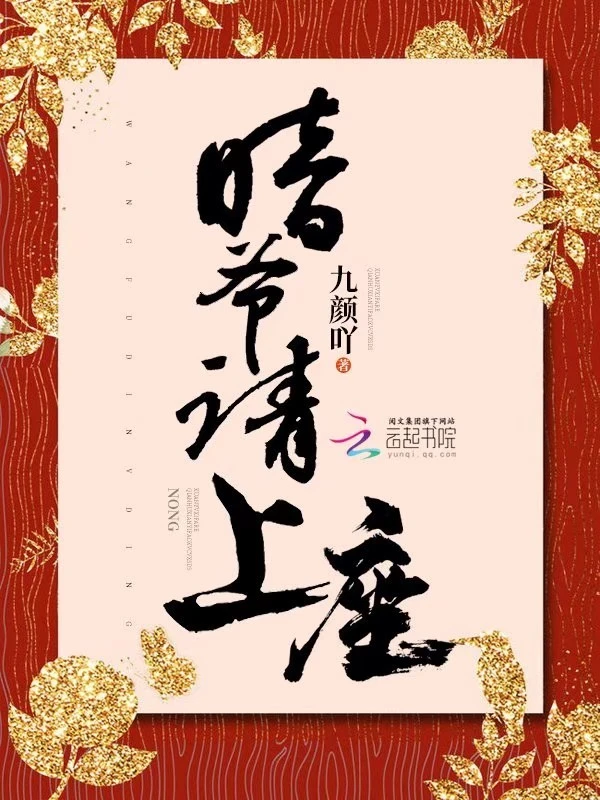 暗爷请上座
九颜吖
著
阅文集团旗下网站
云起书院
yunqi.qq.com
WANGFUDINYDING
NONG